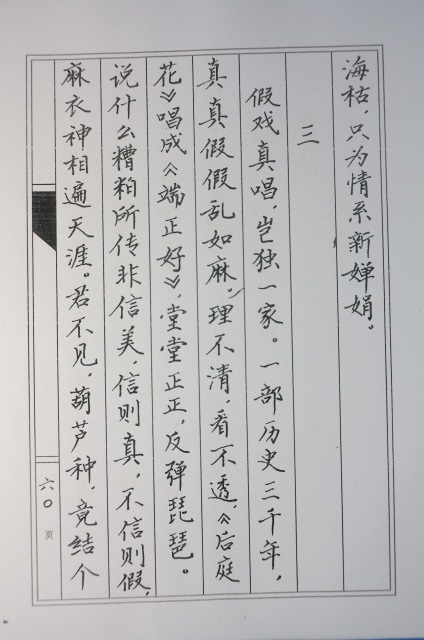 海枯，只为情系新婵娟。
三
假戏真唱，岂独一家。一部历史三千年，
真真假假乱如麻。理不清，看不透，《后庭
花》唱成《端正好》，堂堂正正，反弹琵琶。
说什么糟粕所传非信美，信则真，不信则假，
麻衣神相遍天涯。君不见，葫芦种，竟结个
六〇页